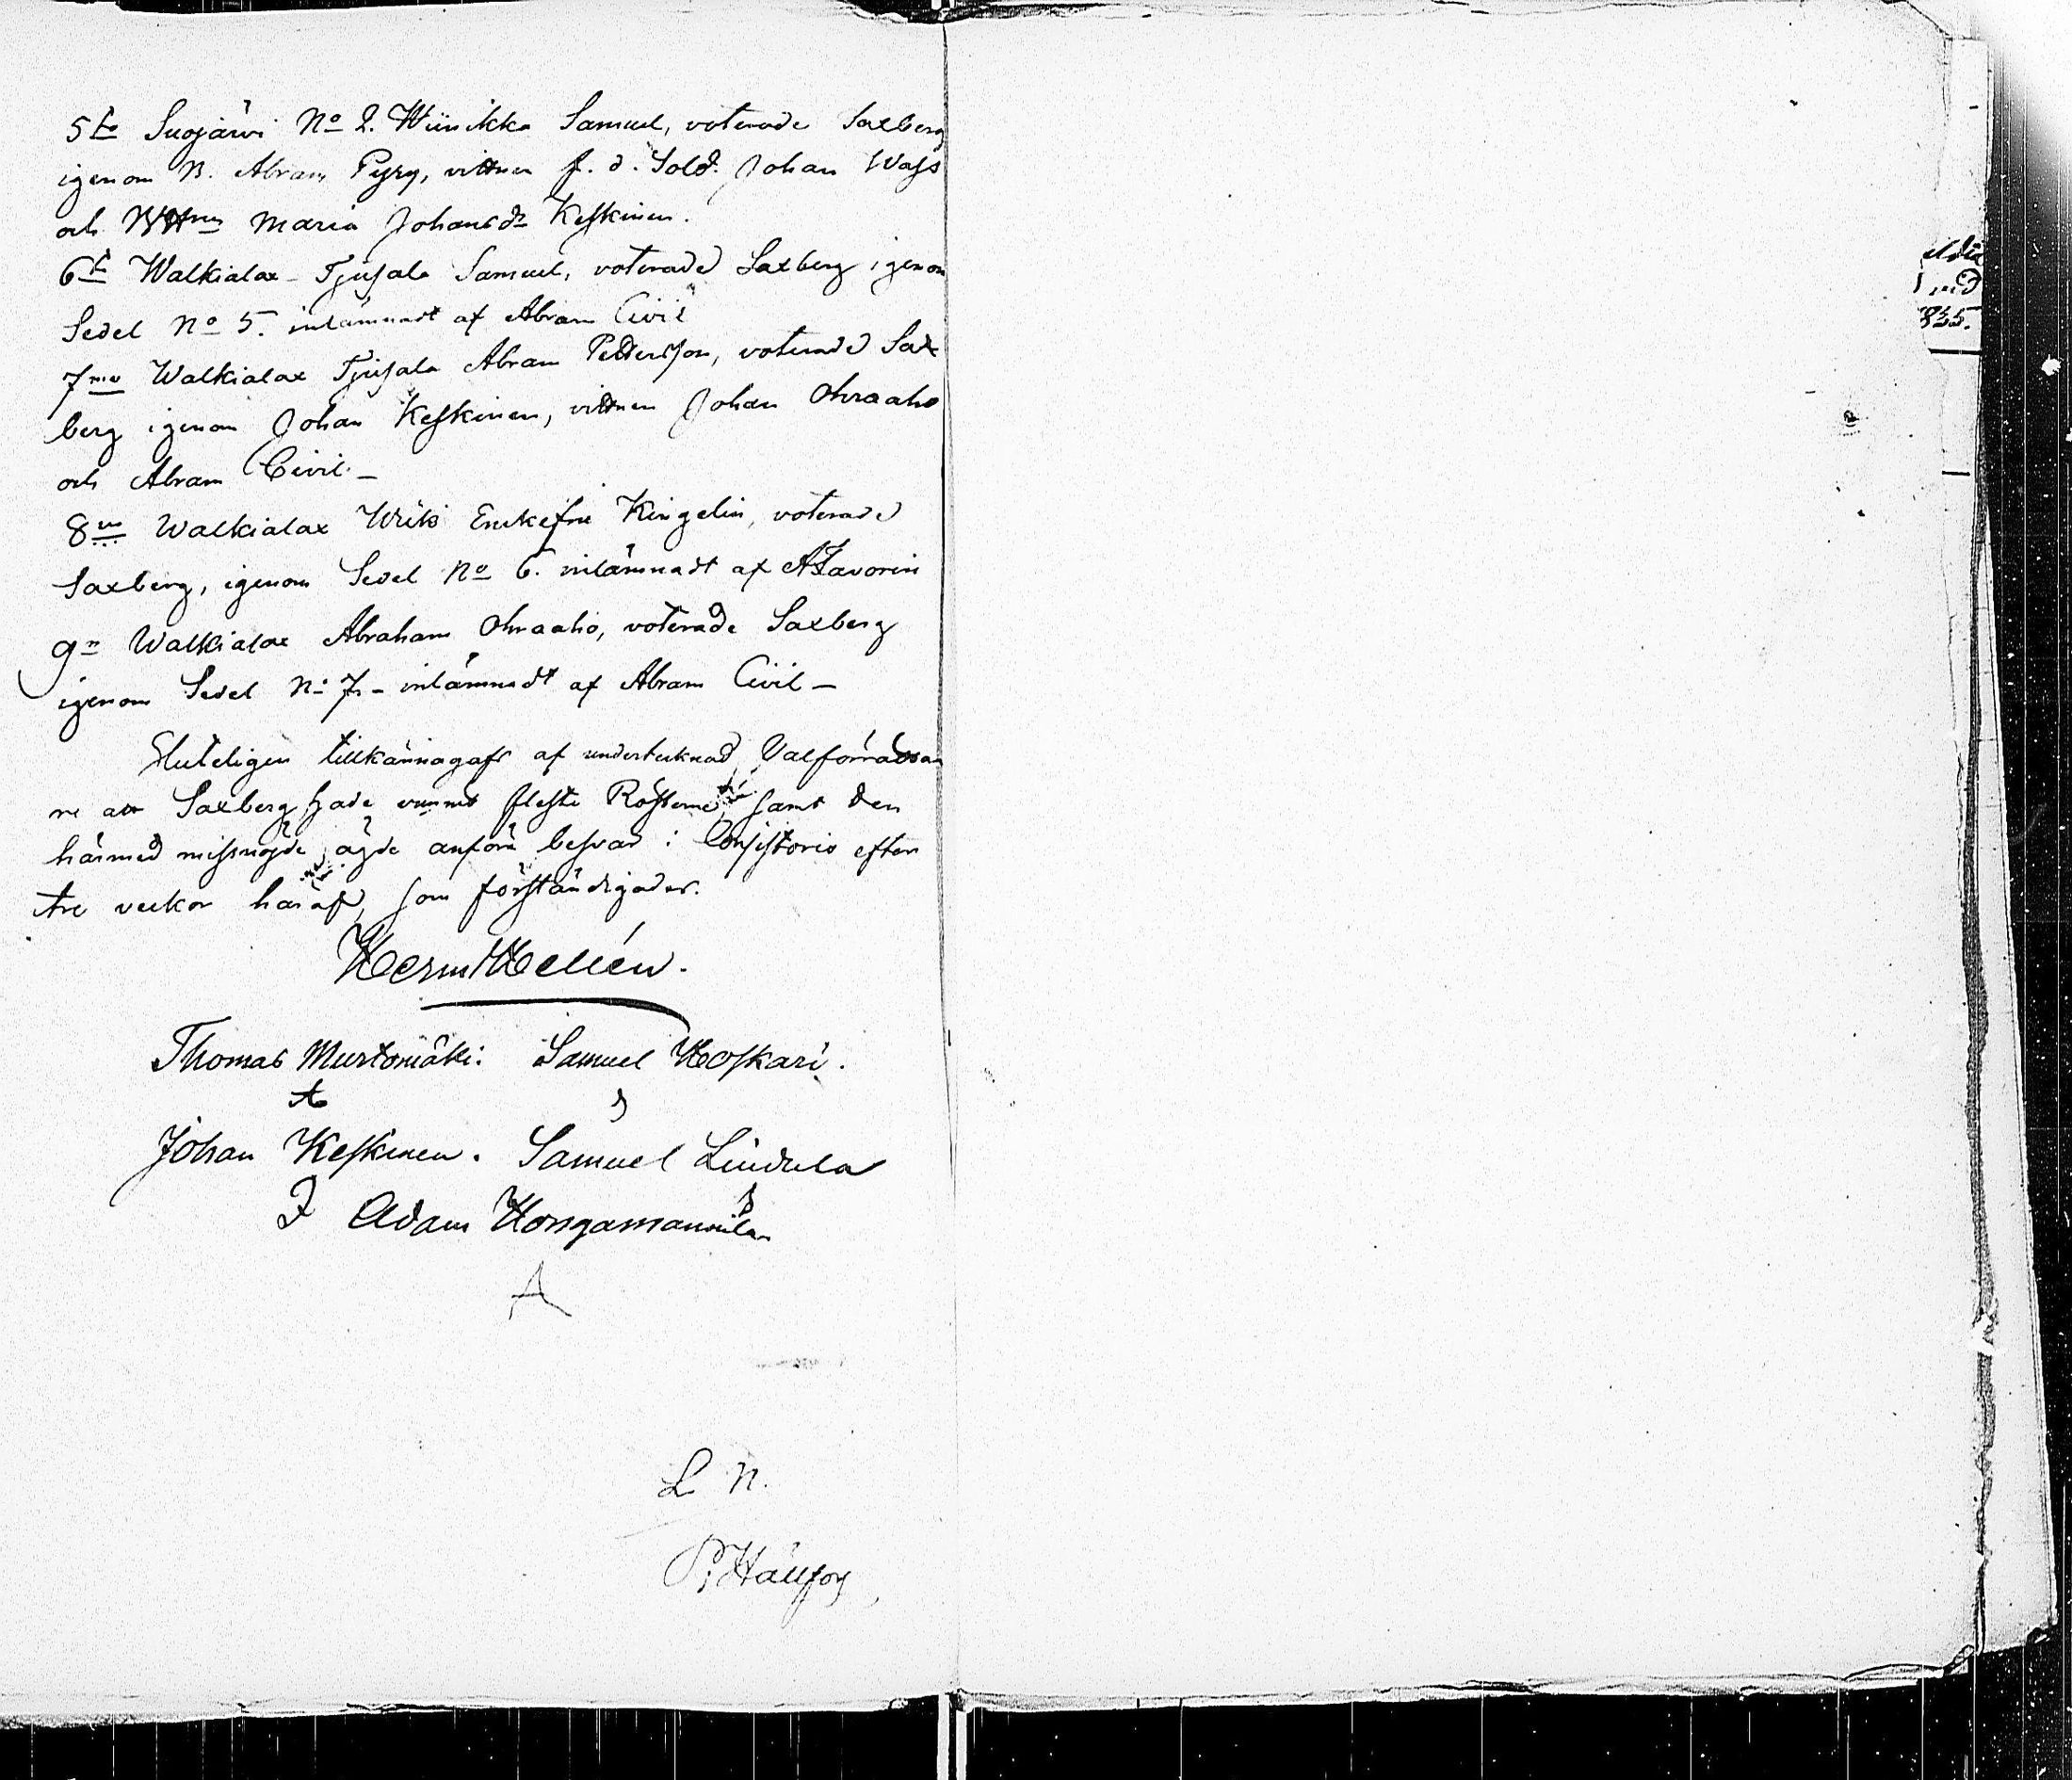 5to Suojärwi No 2. Wiinikka Samuel, voterade Saxberg
igenom B. Abram Pyry, vittnen f. d. Sold. Johan Wass
och Maria Johansdr Keskinen.
6te Walkialax Tjusala Samuel, voterade Saxberg igenom
Sedel No 5. inlämnadt af Abram Civil
7me Walkialax Tjusala Abram Pettersson, voterade Sax
berg igenom Johan Keskinen, vittnen Johan Ohraaho
och Abram Civil. –
8vo Walkialax Enkefru Kingelin, voterade
Saxberg, igenom Sedel No 6. inlämnadt af A Zavorin
9n Walkialax Abraham Ohraaho, voterade Saxberg
igenom Sedel No 7. – inlämnadt af Abram Civil –
Sluteligen tillkännagafs af undertecknad Valförrättan
re att Saxberg hade vunnit fleste Rösterne, samt den
härmed missnögde ägde anföra besvär i Consistorio efter
tre veckor häraf, som förständigades.
Herm Hellén.
Thomas Murtomäki. Samuel Koskari.
Johan Keskinen. Samuel Lindula
Adam Kongamannila
A
L N.
855.